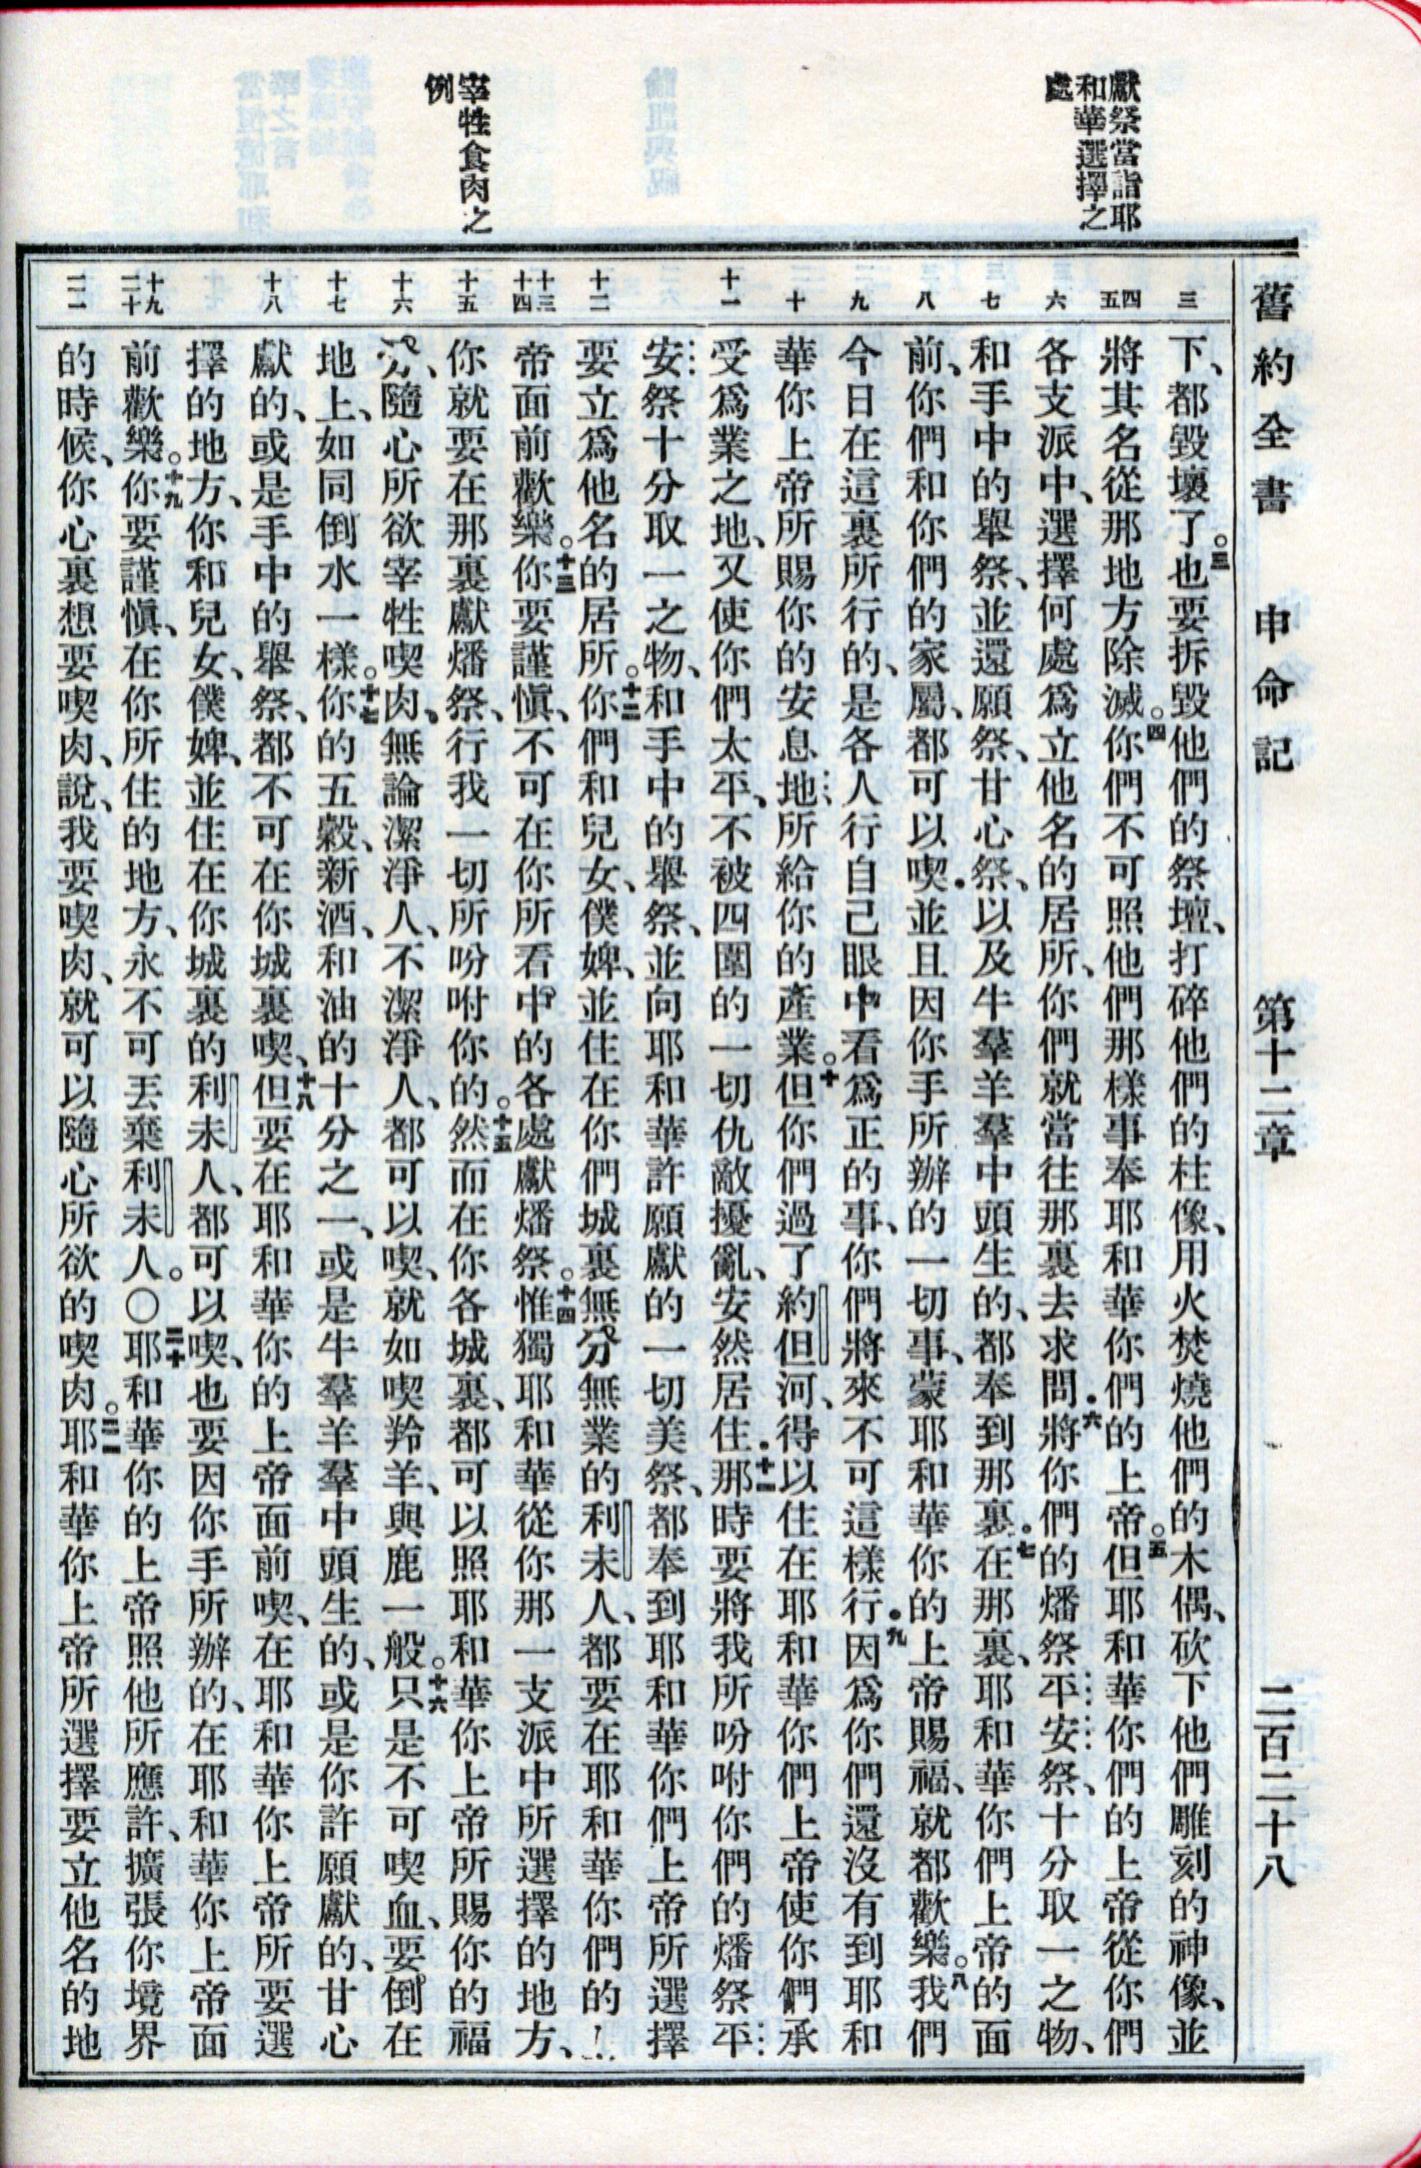 舊約全書　申命記　第十二章　二百二十八
獻祭當詣耶
和華選擇之
處
宰牲食肉之
例
三
四
五
六
七
八
九
十
十一
十二
十三
十四
十五
十六
十七
十八
十九
二十
二一
下、都毀壞了。三也要拆毀他們的祭壇、打碎他們的柱像、用火焚燒他們的木偶、砍下他們雕刻的神像、並
將其名從那地方除滅。四你們不可照他們那樣事奉耶和華你們的上帝。五但耶和華你們的上帝從你們
各支派中、選擇何處爲立他名的居所、你們就當往那裏去求問．六將你們的燔祭平安祭、十分取一之物、
和手中的舉祭、並還願祭、甘心祭、以及牛羣羊羣中頭生的、都奉到那裏．七在那裏、耶和華你們上帝的面
前、你們和你們的家屬、都可以喫．並且因你手所辦的一切事、蒙耶和華你的上帝賜福、就都歡樂。八我們
今日在這裏所行的、是各人行自己眼中看爲正的事、你們將來不可這樣行．九因爲你們還沒有到耶和
華你上帝所賜你的安息地所給你的產業。十但你們過了約但河、得以住在耶和華你們上帝使你們承
受爲業之地、又使你們太平、不被四圍的一切仇敵擾亂、安然居住．十一那時要將我所吩咐你們的燔祭平
安祭十分取一之物、和手中的舉祭、並向耶和華許願獻的一切美祭、都奉到耶和華你們上帝所選擇
要立爲他名的居所。十二你們和兒女、僕婢、並住在你們城裏無分無業的利未人、都要在耶和華你們的上
帝面前歡樂。十三你要謹愼、不可在你所看中的各處獻燔祭。十四惟獨耶和華從你那一支派中所選擇的地方、
你就要在那裏獻燔祭、行我一切所吩咐你的。十五然而在你各城裏、都可以照耶和華你上帝所賜你的福
分、隨心所欲宰牲喫肉．無論潔淨人、不潔淨人、都可以喫、就如喫羚羊、與鹿一般。十六只是不可喫血、要倒在
地上、如同倒水一樣。十七你的五穀、新酒、和油的十分之一、或是牛羣羊羣中頭生的、或是你許願獻的、甘心
獻的、或是手中的舉祭、都不可在你城裏喫、十八但要在耶和華你的上帝面前喫、在耶和華你上帝所要選
擇的地方、你和兒女、僕婢、並住在你城裏的利未人、都可以喫、也要因你手所辦的、在耶和華你上帝面
前歡樂。十九你要謹愼、在你所住的地方、永不可丟棄利未人。○二十耶和華你的上帝照他所應許、擴張你境界
的時候、你心裏想要喫肉、說、我要喫肉、就可以隨心所欲的喫肉。二一耶和華你上帝所選擇要立他名的地